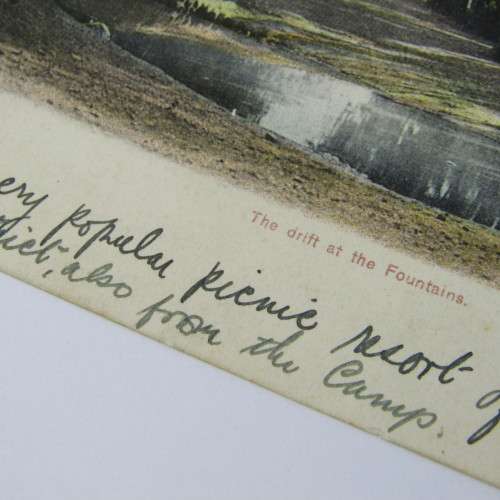 The drift at the Fountains.
very popular picnic resort
also from the Camp.